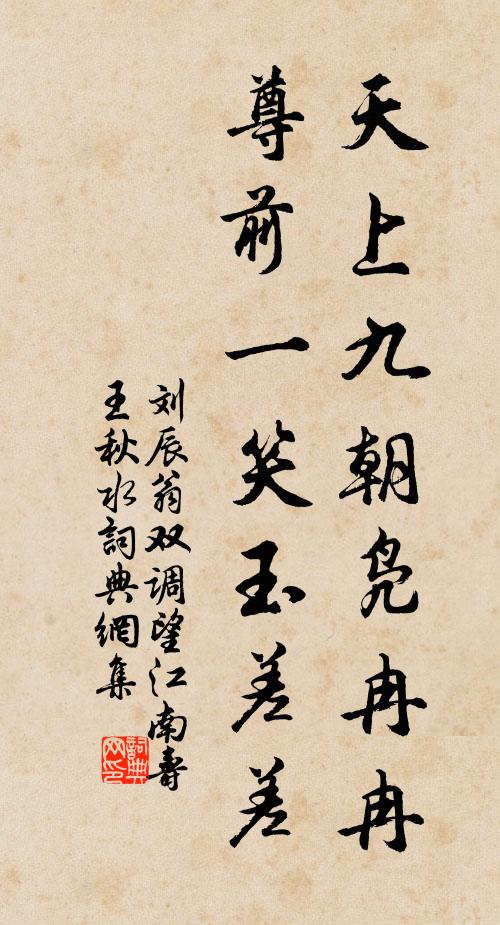 天上九朝凫冉冉
尊前一笑玉差差
刘辰翁双调望江南寿
王秋水詞典網集
詞典
网印